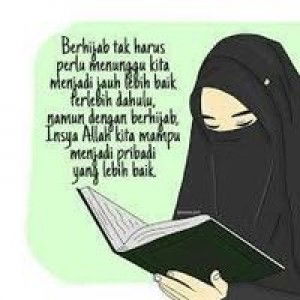 Berhijab tak harus
perlu menunggu kita
menjadi jauh lebih baik
terlebih dahulu,
namun dengan berhijab,
Insya Allah kita mampu
menjadi pribadi
yang lebih baik.